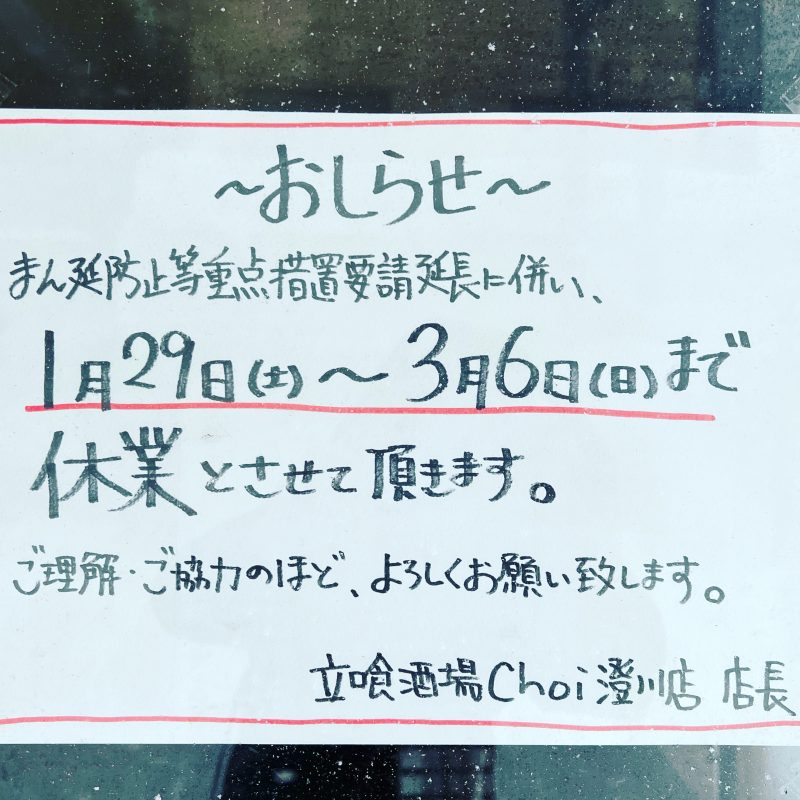 ～おしらせ～
まん延防止等重点措置要請延長に併い、
1月29日(土)～3月6日(日)まで
休業とさせて頂きます。
ご理解・ご協力のほど、よろしくお願い致します。
立喰酒場Choi澄川店 店長